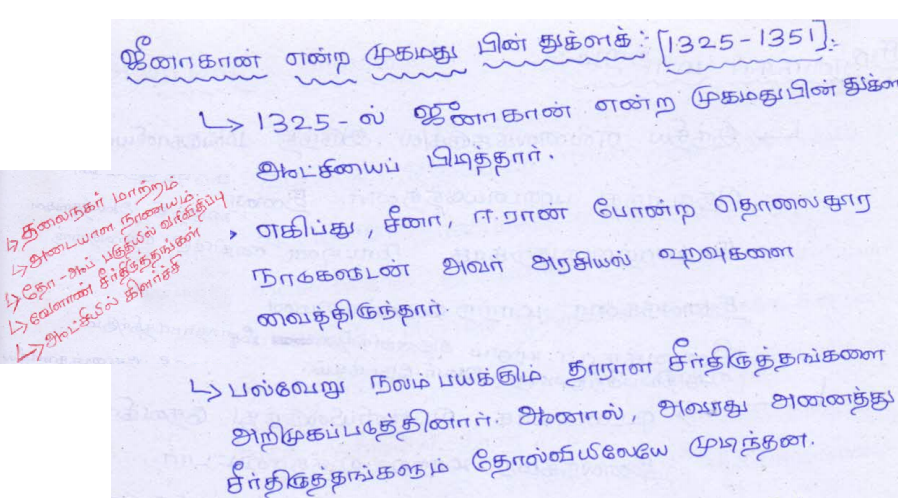 ஜீனாகான் என்ற முகமது பின் துக்ளக் : [1325-1351]:-
↳ 1325-ல் ஜீனாகான் என்ற முகமதுபின் துக்ள
ஆட்சியைப் பிடித்தார்.
எகிப்து, சீனா, ஈரான் போன்ற தொலைதூர
நாடுகளுடன் அவர் அரசியல் உறவுகளை
வைத்திருந்தார்.
↳ தலைநகர் மாற்றம்
↳ அடையாள நாணயம்
↳ தோ-ஆப் பகுதியில் வரிவிதிப்பு
↳ வேளாண் சீர்திருத்தங்கள்
↳ ஆட்சியில் கிளர்ச்சி
↳ பல்வேறு நலம் பயக்கும் தாராள சீர்திருத்தங்களை
அறிமுகப்படுத்தினார். ஆனால், அவரது அனைத்து
சீர்திருத்தங்களும் தோல்வியிலேயே முடிந்தன.